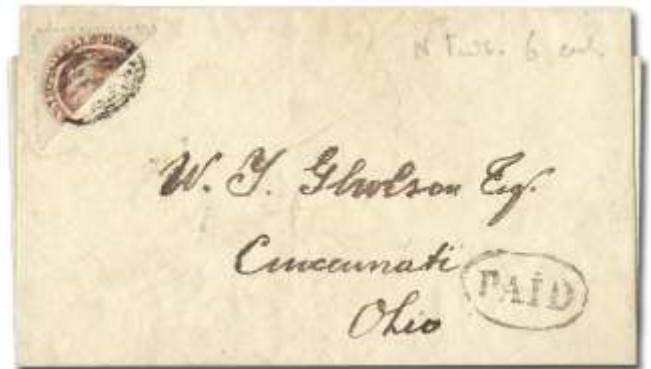 W. Y. Gholson Esq.
Cincinnati
Ohio
PAID